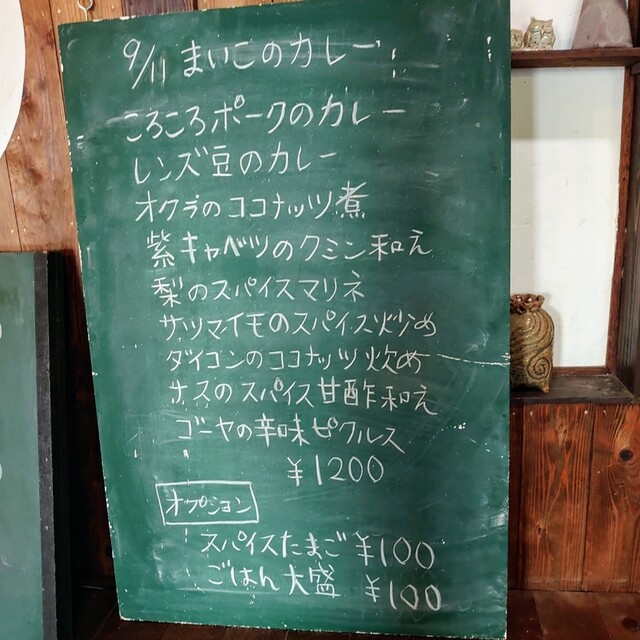 9/11 まいこのカレー
ころころポークのカレー
レンズ豆のカレー
オクラのココナッツ煮
紫キャベツのクミン和え
梨のスパイスマリネ
サツマイモのスパイス炒め
ダイコンのココナッツ炒め
ナスのスパイス甘酢和え
ゴーヤの辛味ピクルス
¥1200
オプション
スパイスたまご ¥100
ごはん大盛 ¥100